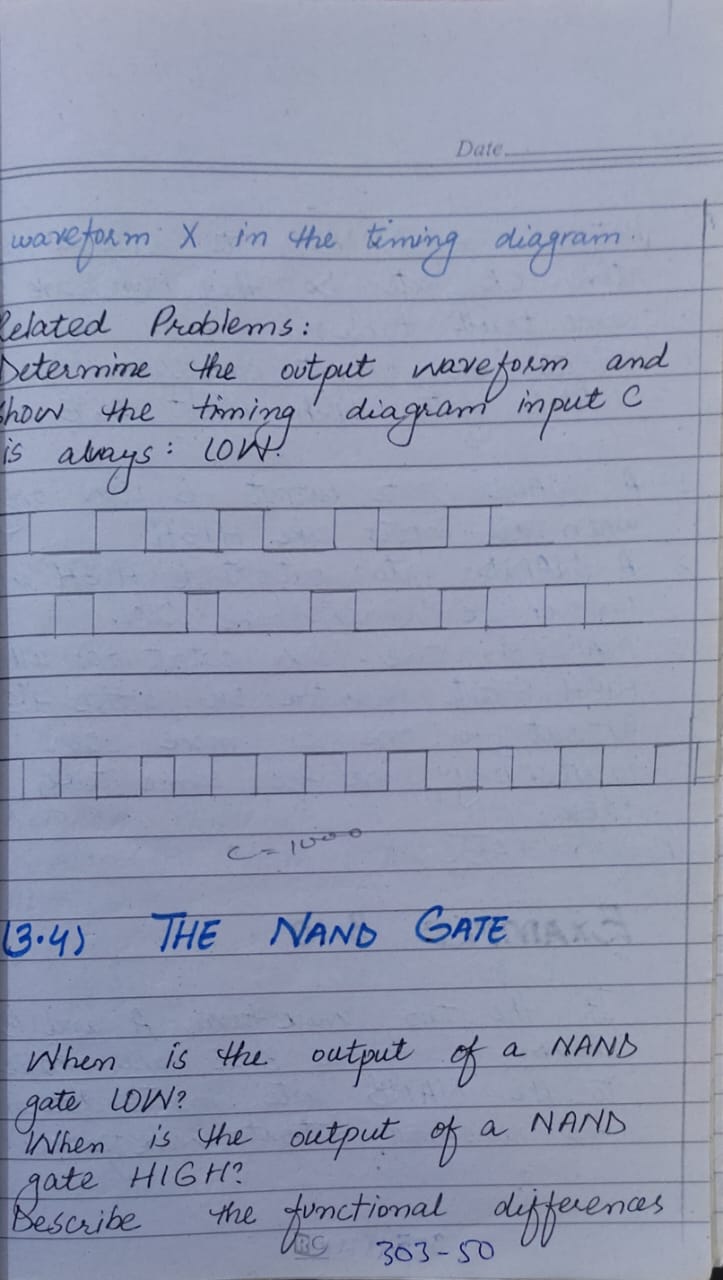 Date
waveform X in the timing diagram.
Related Problems:
Determine the output waveform and
show the timing diagram input C
is always: LOW.
(3.4) THE NAND GATE
When is the output of a NAND
gate LOW?
When is the output of a NAND
gate HIGH?
Describe the functional differences
RC
303-50